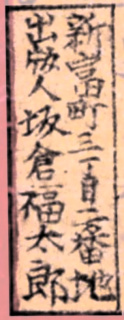 新富町三丁目二番地
出版人坂倉福太郎